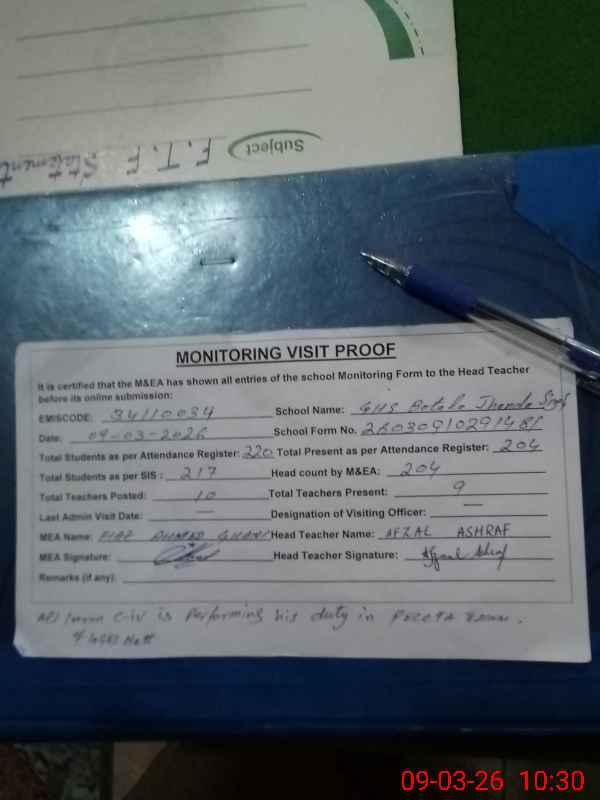 Subject
F.T.F Statement
MONITORING VISIT PROOF
It is certified that the M&EA has shown all entries of the school Monitoring Form to the Head Teacher
before its online submission:
EMISCODE: 34110034 School Name: GHS Botala Jhanda Singh
Date: 09-03-2026 School Form No.
Total Students as per Attendance Register: 220 Total Present as per Attendance Register: 204
Total Students as per SIS : 217 Head count by M&EA: 204
Total Teachers Posted: 10 Total Teachers Present: 9
Last Admin Visit Date: — Designation of Visiting Officer: —
MEA Name: AHMAD Head Teacher Name: AFZAL ASHRAF
MEA Signature: Head Teacher Signature: Afzal Ashraf
Remarks (if any):
C-iv is Performing his duty in
09-03-26 10:30